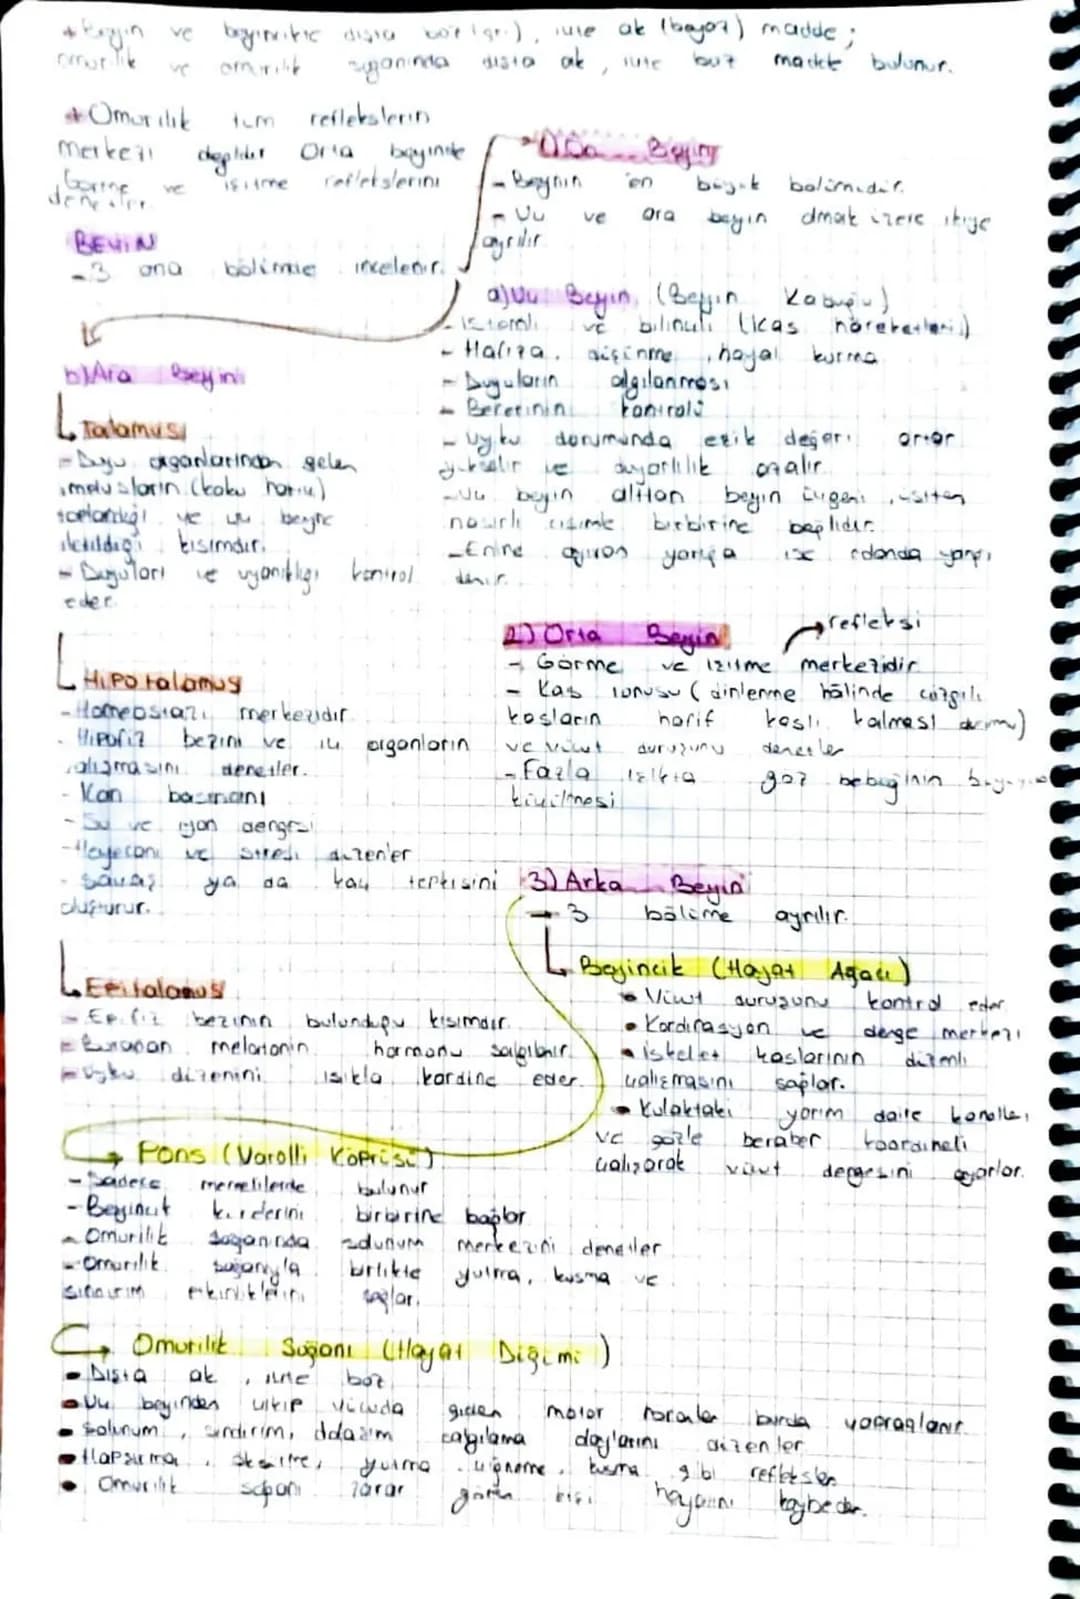 * Beyin ve beyincikte dışta boz (gri), içte ak (beyaz) madde;
omurilik ve omurilik soğanında dışta ak, içte boz madde bulunur.
* Omurilik tüm reflekslerin
merkezi değildir Orta beyinde
görme ve işitme reflekslerini
denetler.
BEYİN
- 3 ana bölümde incelenir.
1) Ön Beyin
- Beynin en büyük bölümüdür.
- Uç ve ara beyin olmak üzere ikiye
ayrılır
a) Uç Beyin (Beyin Kabuğu)
- İstemli ve bilinçli (kas hareketleri)
- Hafıza, düşünme, hayal kurma
- Duyuların algılanması
- Becerinin kontrolü
- Uyku durumunda eşik değeri artar
yükselir ve duyarlılık azalır.
- Uç beyin alttan beyin üçgeni, üstten
nasırlı cisimle birbirine bağlıdır.
- Enine ayıran yarığa ise rolando yarığı
denir.
b) Ara Beyin
Talamus
- Duyu organlarından gelen
impulsların (koku hariç)
toplandığı ve uç beyne
iletildiği kısımdır.
- Duyuları ve uyanıklığı kontrol
eder.
Hipotalamus
- Homeostazi merkezidir.
- Hipofiz bezini ve iç organların
çalışmasını denetler.
- Kan basıncını
- Su ve iyon dengesi
- Heyecanı ve stresi düzenler
- Savaş ya da kaç tepkisini
oluşturur.
Epitalamus
- Epifiz bezinin bulunduğu kısımdır.
- Buradan melatonin hormonu salgılanır.
- Uyku düzenini ışıkla kordine eder.
2) Orta Beyin
refleksi
- Görme ve işitme merkezidir
- Kas tonusu (dinlenme hâlinde çizgili
kasların hafif kaslı kalması durumu)
ve vücut duruşunu denetler
- Fazla ışıkta göz bebeğinin
küçülmesi
3) Arka Beyin
→ 3 bölüme ayrılır.
Beyincik (Hayat Ağacı)
• Vücut duruşunu kontrol eder
• Kordinasyon ve denge merkezi
• İskelet kaslarının düzenli
çalışmasını sağlar.
• Kulaktaki yarım daire kanalları
ve gözle beraber koordineli
çalışarak vücut dengesini ayarlar.
Pons (Varolli Köprüsü)
- Sadece memelilerde bulunur
- Beyincik kürelerini birbirine bağlar
- Omurilik soğanında solunum merkezini denetler
- Omurilik soğanıyla birlikte yutma, kusma ve
sindirim etkinliklerini sağlar.
Omurilik Soğanı (Hayat Düğümü)
• Dışta ak, içte boz
• Uç beyinden çıkıp vücuda giden motor nöronlar burda çaprazlanır.
• Solunum, sindirim, dolaşım boşaltım olaylarını düzenler
• Hapşırma, öksürme, yutma, çiğneme, kusma gibi refleksler
• Omurilik soğanı zarar gören kişi hayatını kaybeder.